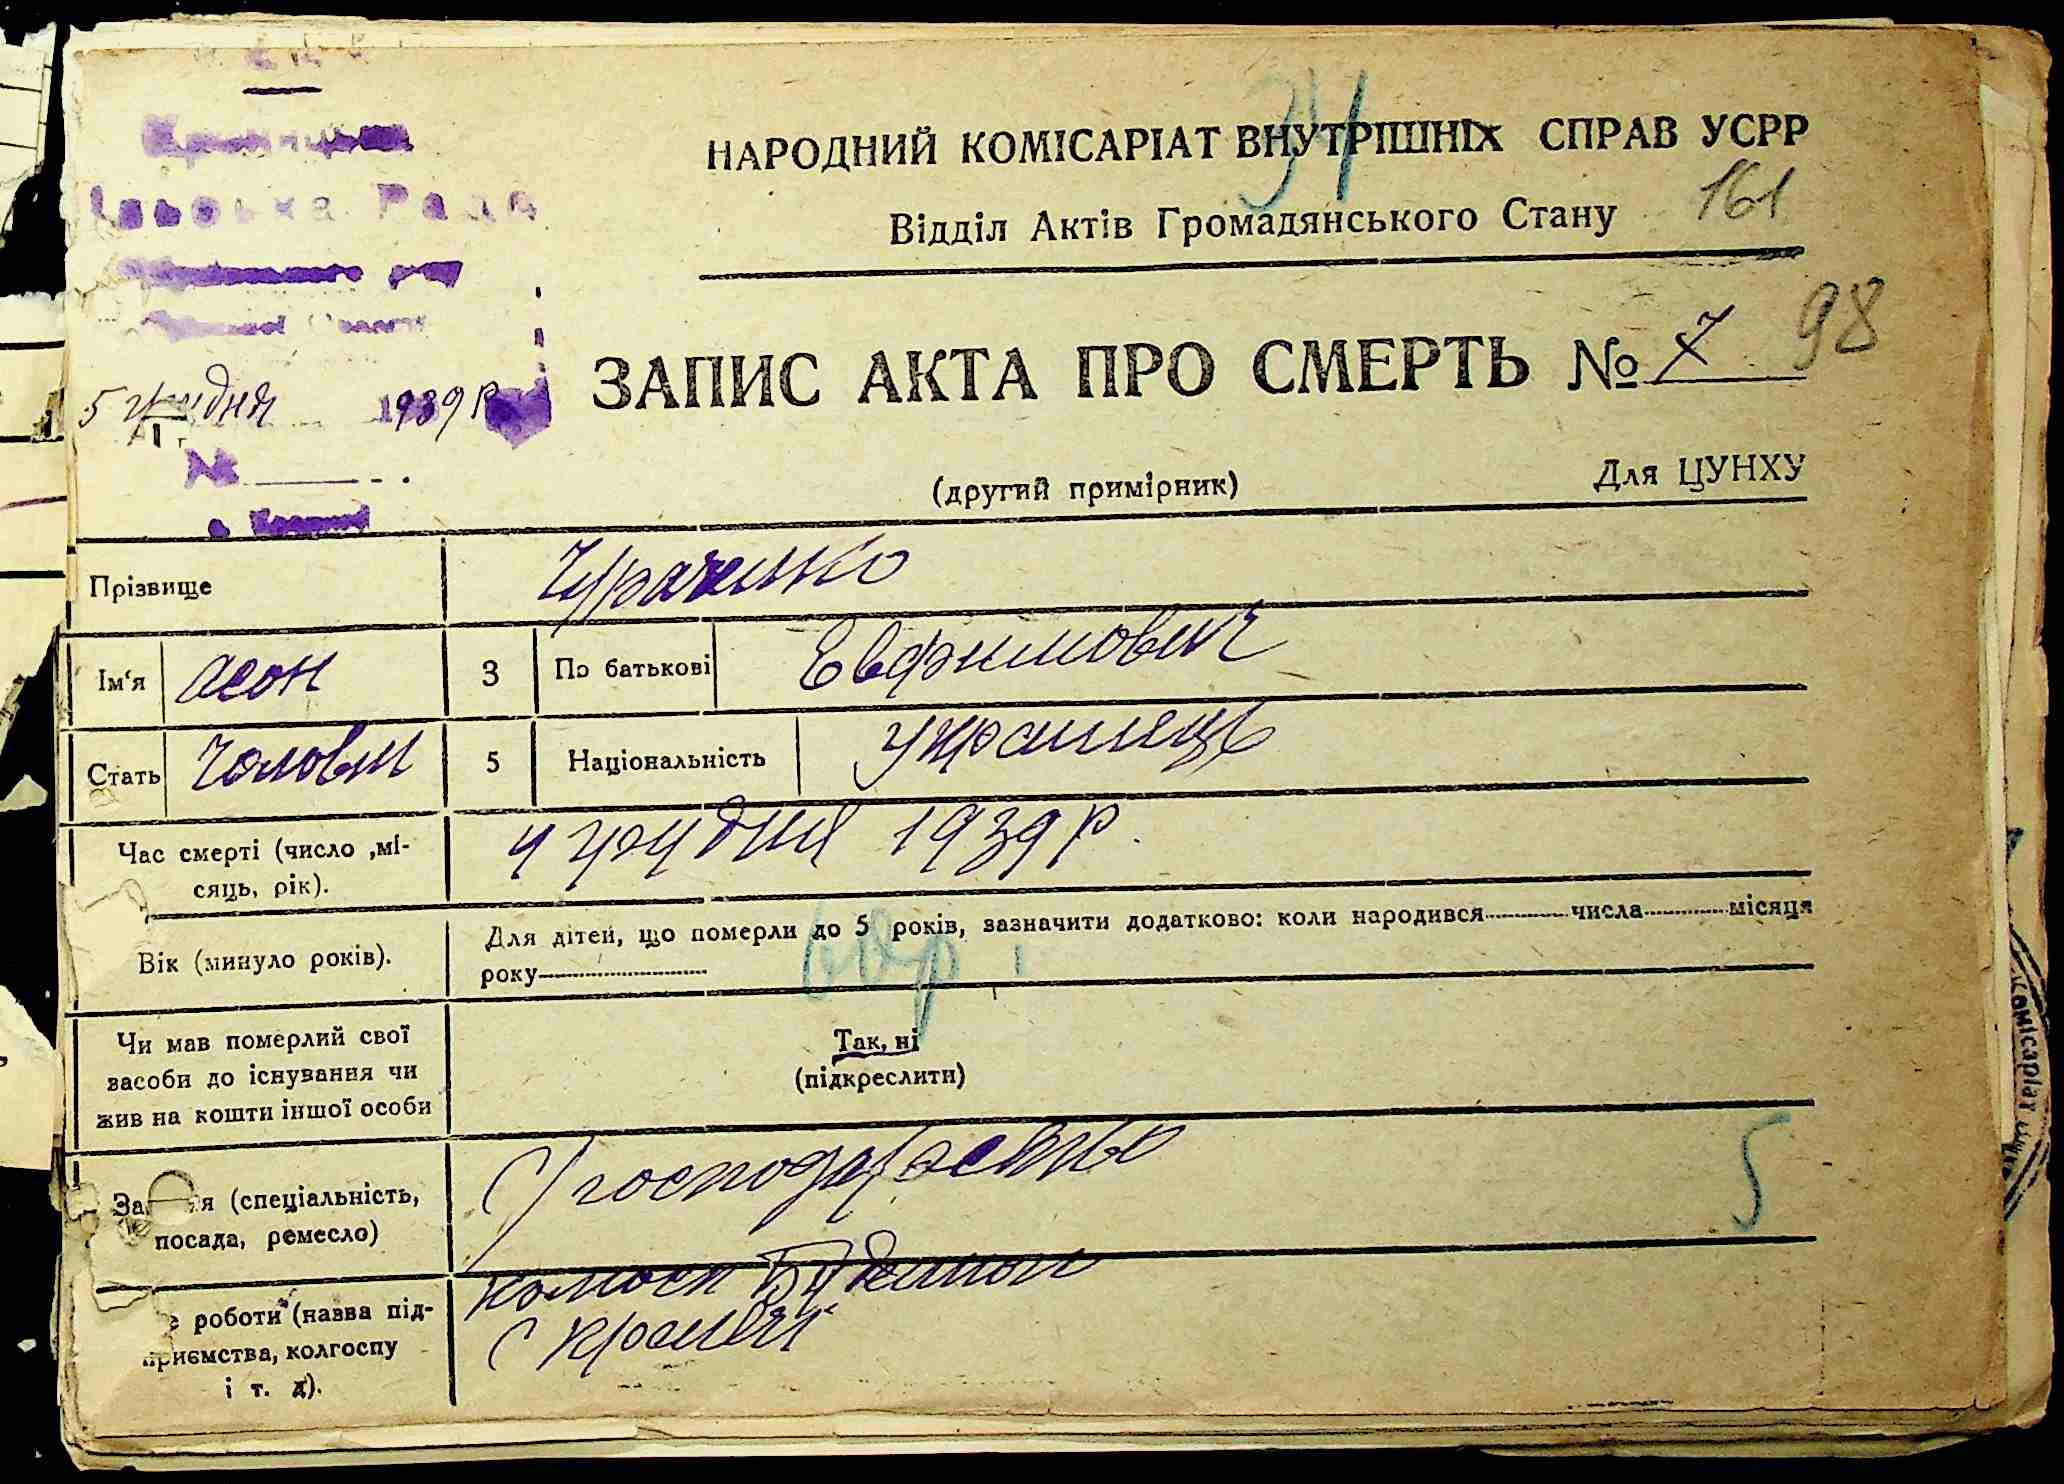 34
НАРОДНИЙ КОМІСАРІАТ ВНУТРІШНІХ СПРАВ УСРР
Відділ Актів Громадянського Стану
161
Рада
98
ЗАПИС АКТА ПРО СМЕРТЬ № 7
5 грудня 1939 р
№
(другий примірник)
Для ЦУНХУ
Прізвище
Ім'я
3
По батькові Евфимович
Стать чоловіч
5
Національність Українець
Час смерті (число ,мі-
сяць, рік).
4 грудня 1939 р.
Вік (минуло років).
Для дітей, що померли до 5 років, зазначити додатково: коли народився числа місяця
року
60 р
Чи мав померлий свої
засоби до існування чи
жив на кошти іншої особи
Так, ні
(підкреслити)
(спеціальність,
посада, ремесло)
С/господарство
5
роботи (назва під-
приємства, колгоспу
і т. д).